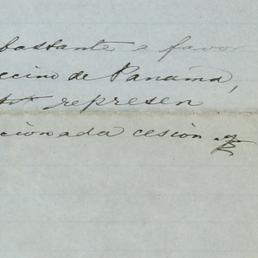 bastante a favor
ecino de Panamá,
represen
cionada cesion.